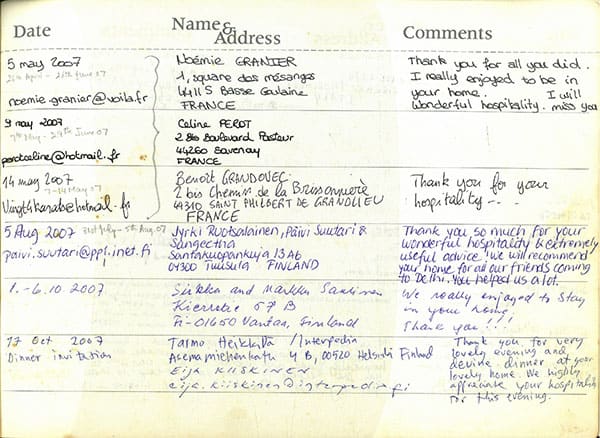 Date
Name & Address
Comments
5 may 2007
noemie.granier@voila.fr
Noémie GRANIER
1, square des mésanges
44115 Basse Goulaine
FRANCE
Thank you for all you did.
I really enjoyed to be in
your home. I will
wonderful hospitality. miss you
9 may 2007
perotceline@hotmail.fr
Celine PEROT
2 Bis Boulevard Pasteur
44260 Savenay
FRANCE
14 may 2007
7-14 May 07
Benoit GRANDOVEC
2 bis Chemin de la Brissonnière
44310 SAINT PHILBERT DE GRANDLIEU
FRANCE
Thank you for your
hospitality - -
5 Aug 2007
31st July - 5th Aug 07
paivi.suutari@pp1.inet.fi
Jyrki Ruotsalainen, Päivi Suutari &
Sangeetha
Santakuopankuja 13 A6
04300 Tuusula FINLAND
Thank you so much for your
wonderful hospitality & extremely
useful advice! We will recommend
your home for all our friends coming
to Delhi. You helped us a lot.
1.-6.10.2007
Sirkka and Markku Saarinen
Kierretie 57 B
Fi-01650 Vantaa, Finland
We really enjoyed to stay
in your home,
Thank you!!!
17 Oct 2007
Dinner invitation
Tarmo Heikkilä / Interpedia
Asemamiehenkatu 4 B, 00520 Helsinki Finland
Eija KIISKINEN
eija.kiiskinen@interpedia.fi
Thank you, for very
lovely evening and
devine dinner at your
lovely home. We highly
appreciate your hospitality
for this evening.